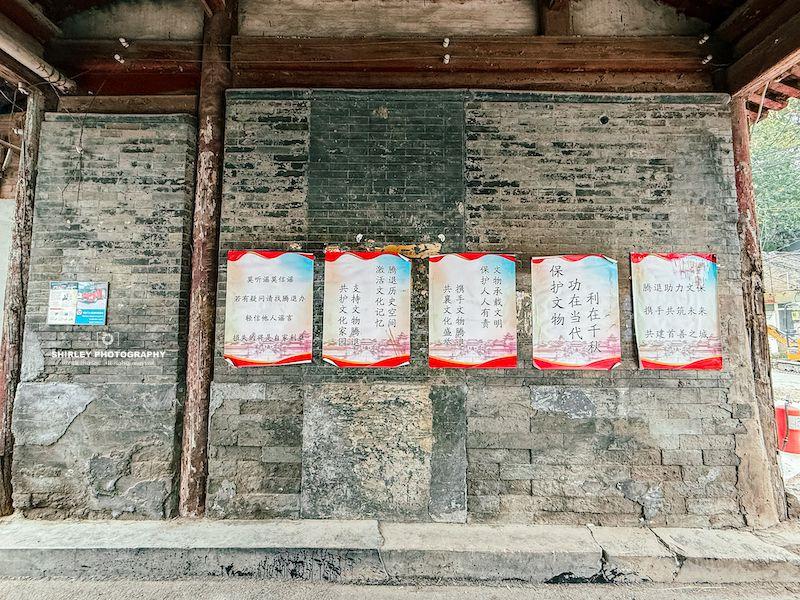 莫听谣莫信谣
若有疑问请找腾退办
轻信他人谣言
损失的将是自家利益
腾退历史空间
激活文化记忆
支持文物腾退
共护文化家园
文物承载文明
保护人人有责
携手文物腾退
共襄文化盛举
保护文物
功在当代
利在千秋
腾退助力文保
携手共筑未来
共建首善之城
SHIRLEY PHOTOGRAPHY